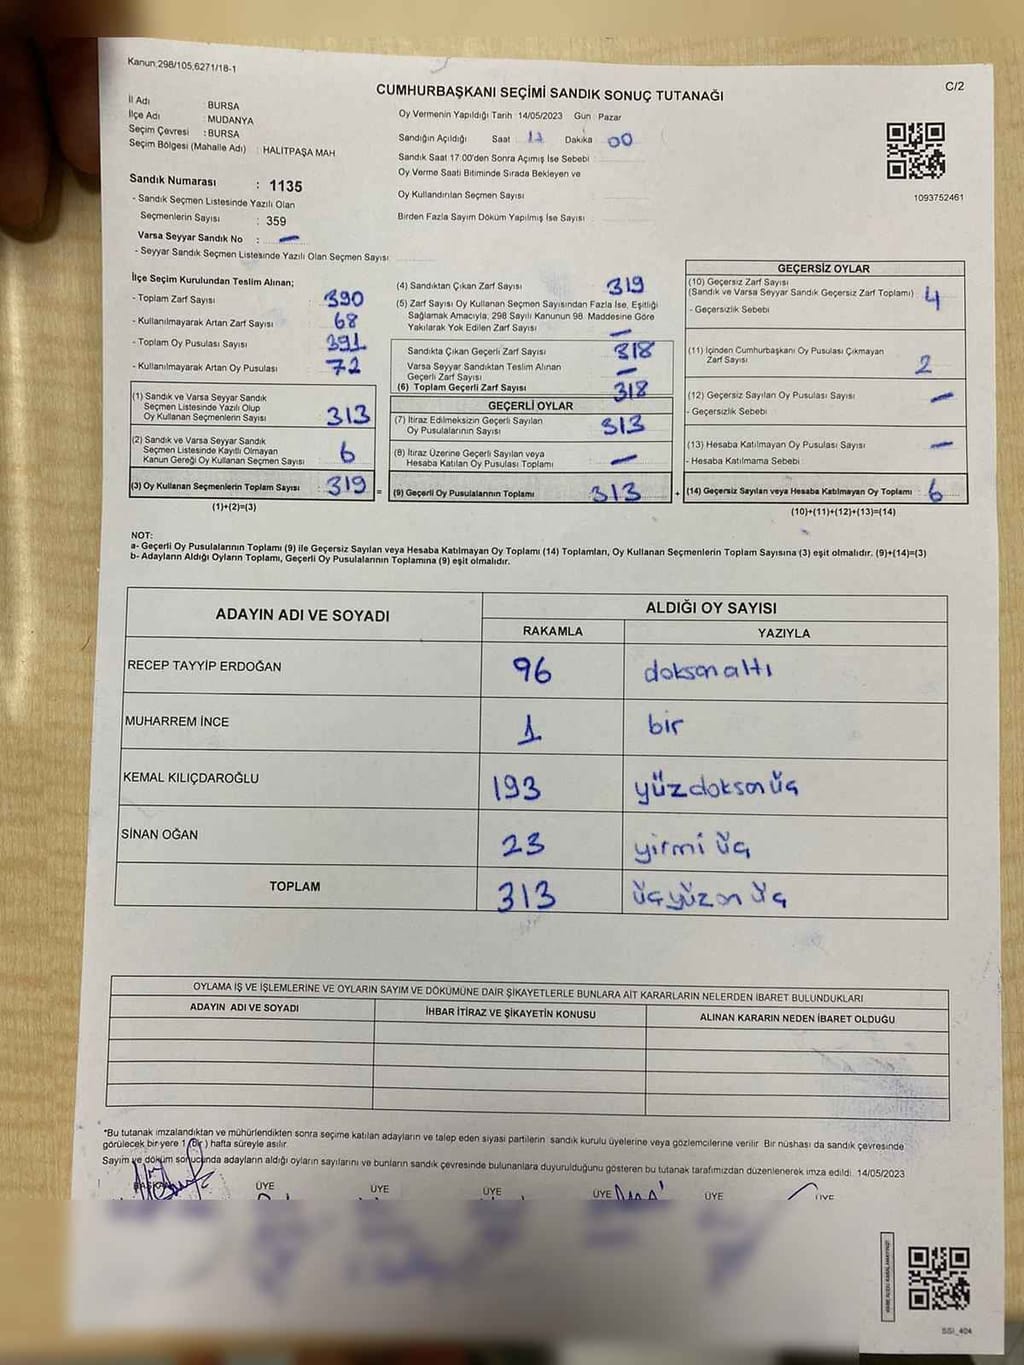 Kanun 298/105,6271/18-1
CUMHURBAŞKANI SEÇİMİ SANDIK SONUÇ TUTANAĞI
C/2
İl Adı : BURSA
İlçe Adı : MUDANYA
Seçim Çevresi : BURSA
Seçim Bölgesi (Mahalle Adı) : HALİTPAŞA MAH
Sandık Numarası : 1135
- Sandık Seçmen Listesinde Yazılı Olan
Seçmenlerin Sayısı : 359
Varsa Seyyar Sandık No : –
- Seyyar Sandık Seçmen Listesinde Yazılı Olan Seçmen Sayısı
Oy Vermenin Yapıldığı Tarih 14/05/2023 Gün Pazar
Sandığın Açıldığı Saat Dakika 00
Sandık Saat 17.00'den Sonra Açımış İse Sebebi
Oy Verme Saati Bitiminde Sırada Bekleyen ve
Oy Kullandırılan Seçmen Sayısı
Birden Fazla Sayım Döküm Yapılmış İse Sayısı
1093752461
İlçe Seçim Kurulundan Teslim Alınan;
- Toplam Zarf Sayısı 390
- Kullanılmayarak Artan Zarf Sayısı 68
- Toplam Oy Pusulası Sayısı 391
- Kullanılmayarak Artan Oy Pusulası 72
(1) Sandık ve Varsa Seyyar Sandık
Seçmen Listesinde Yazılı Olup
Oy Kullanan Seçmenlerin Sayısı 313
(2) Sandık ve Varsa Seyyar Sandık
Seçmen Listesinde Kayıtlı Olmayan
Kanun Gereği Oy Kullanan Seçmen Sayısı 6
(3) Oy Kullanan Seçmenlerin Toplam Sayısı : 319 =
(1)+(2)=(3)
(4) Sandıktan Çıkan Zarf Sayısı 319
(5) Zarf Sayısı Oy Kullanan Seçmen Sayısından Fazla İse, Eşitliği
Sağlamak Amacıyla, 298 Sayılı Kanunun 98. Maddesine Göre
Yakılarak Yok Edilen Zarf Sayısı –
Sandıkta Çıkan Geçerli Zarf Sayısı 318
Varsa Seyyar Sandıktan Teslim Alınan
Geçerli Zarf Sayısı –
(6) Toplam Geçerli Zarf Sayısı 318
GEÇERLİ OYLAR
(7) İtiraz Edilmeksizin Geçerli Sayılan
Oy Pusulalarının Sayısı 313
(8) İtiraz Üzerine Geçerli Sayılan veya
Hesaba Katılan Oy Pusulası Toplamı –
(9) Geçerli Oy Pusulalarının Toplamı 313 +
GEÇERSİZ OYLAR
(10) Geçersiz Zarf Sayısı
(Sandık ve Varsa Seyyar Sandık Geçersiz Zarf Toplamı) 4
- Geçersizlik Sebebi
(11) İçinden Cumhurbaşkanı Oy Pusulası Çıkmayan
Zarf Sayısı 2
(12) Geçersiz Sayılan Oy Pusulası Sayısı –
- Geçersizlik Sebebi
(13) Hesaba Katılmayan Oy Pusulası Sayısı –
- Hesaba Katılmama Sebebi
(14) Geçersiz Sayılan veya Hesaba Katılmayan Oy Toplamı : 6
(10)+(11)+(12)+(13)=(14)
NOT:
a- Geçerli Oy Pusulalarının Toplamı (9) ile Geçersiz Sayılan veya Hesaba Katılmayan Oy Toplamı (14) Toplamları, Oy Kullanan Seçmenlerin Toplam Sayısına (3) eşit olmalıdır. (9)+(14)=(3)
b- Adayların Aldığı Oyların Toplamı, Geçerli Oy Pusulalarının Toplamına (9) eşit olmalıdır.
ADAYIN ADI VE SOYADI ALDIĞI OY SAYISI
RAKAMLA YAZIYLA
RECEP TAYYİP ERDOĞAN 96 doksan altı
MUHARREM İNCE 1 bir
KEMAL KILIÇDAROĞLU 193 yüzdoksan üç
SİNAN OĞAN 23 yirmi üç
TOPLAM 313 üçyüzon üç
OYLAMA İŞ VE İŞLEMLERİNE VE OYLARIN SAYIM VE DÖKÜMÜNE DAİR ŞİKAYETLERLE BUNLARA AİT KARARLARIN NELERDEN İBARET BULUNDUKLARI
ADAYIN ADI VE SOYADI İHBAR İTİRAZ VE ŞİKAYETİN KONUSU ALINAN KARARIN NEDEN İBARET OLDUĞU
*Bu tutanak imzalandıktan ve mühürlendikten sonra seçime katılan adayların ve talep eden siyasi partilerin sandık kurulu üyelerine veya gözlemcilerine verilir Bir nüshası da sandık çevresinde
görülecek bir yere 1 (Bir) hafta süreyle asılır.
Sayım ve döküm sonucunda adayların aldığı oyların sayılarını ve bunların sandık çevresinde bulunanlara duyurulduğunu gösteren bu tutanak tarafımızdan düzenlenerek imza edildi. 14/05/2023
BAŞKAN ÜYE ÜYE ÜYE ÜYE ÜYE ÜYE
SSİ_404